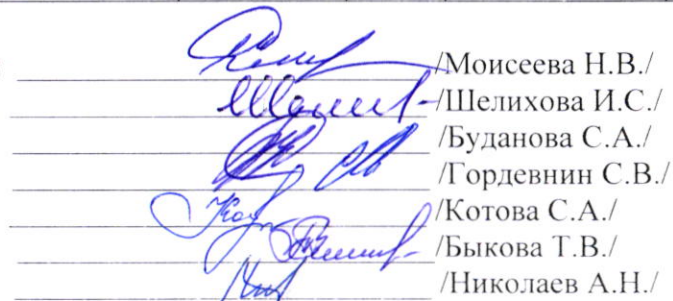 /Моисеева Н.В./
/Шелихова И.С./
/Буданова С.А./
/Гордевнин С.В./
/Котова С.А./
/Быкова Т.В./
/Николаев А.Н./